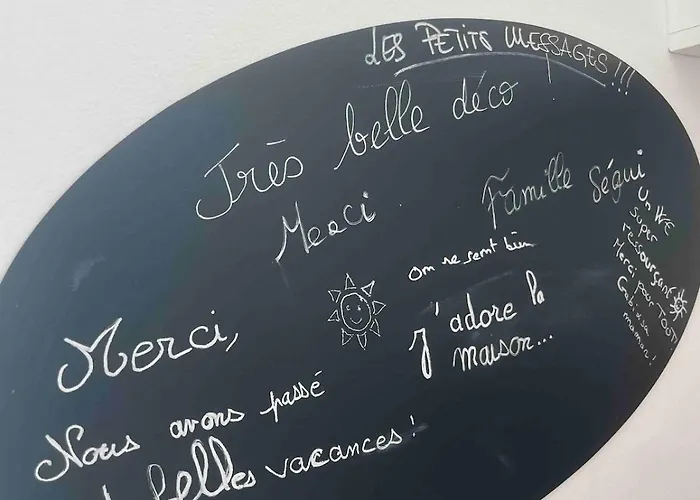 LES PETITS MESSAGES !!!
Très belle déco
Merci
Famille Ségui
Un WE
super
ressourçant
Merci pour TOUT
Gab & sa
maman !
On se sent bien
J'adore la
maison...
Merci,
Nous avons passé
belles vacances !